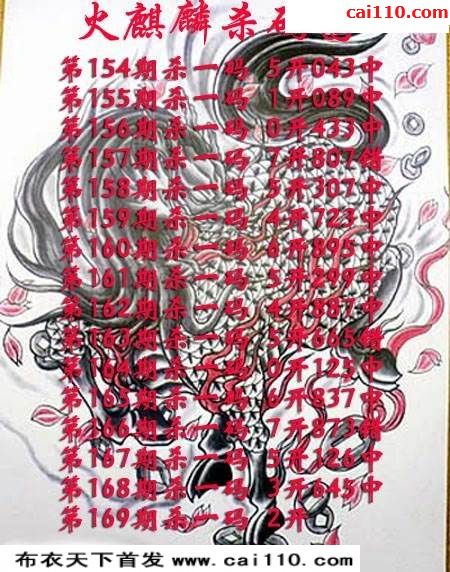 cai110.com
火麒麟杀码
第154期杀一码 5开043中
第155期杀一码 1开089中
第156期杀一码 0开433中
第157期杀一码 7开807错
第158期杀一码 5开307中
第159期杀一码 4开723中
第160期杀一码 6开895中
第161期杀一码 5开299中
第162期杀一码 4开887中
第163期杀一码 5开665错
第164期杀一码 0开125中
第165期杀一码 6开837中
第166期杀一码 7开873错
第167期杀一码 5开126中
第168期杀一码 3开645中
第169期杀一码 2开
布衣天下首发 www.cai110.com